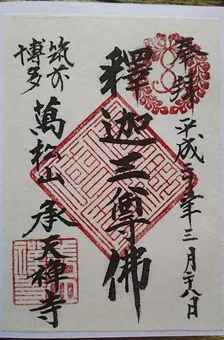 奉拝
平成二十年三月二十八日
釋迦三尊佛
筑前
博多
萬松山
承天禅寺